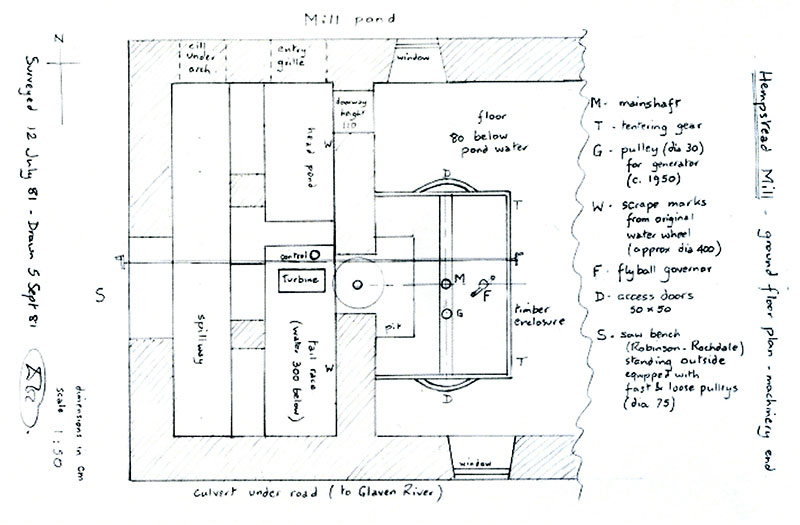 Mill pond
Hempstead Mill - ground floor plan - machinery end
N
Surveyed 12 July 81 - Drawn 5 Sept 81
dimensions in cm
scale 1:50
cill
under
arch
entry
grille
window
doorway
height
110
floor
80 below
pond water
head pond
W
D
T
control
Turbine
M
F
G
S
spillway
pit
timber
enclosure
tail race
(water 300 below)
W
T
D
window
culvert under road (to Glaven River)
M - mainshaft
T - tentering gear
G - pulley (dia 30)
for generator
(c. 1950)
W - scrape marks
from original
water wheel
(approx dia 400)
F - flyball governor
D - access doors
50 x 50
S - saw bench
(Robinson - Rochdale)
standing outside
equipped with
fast & loose pulleys
(dia 75)